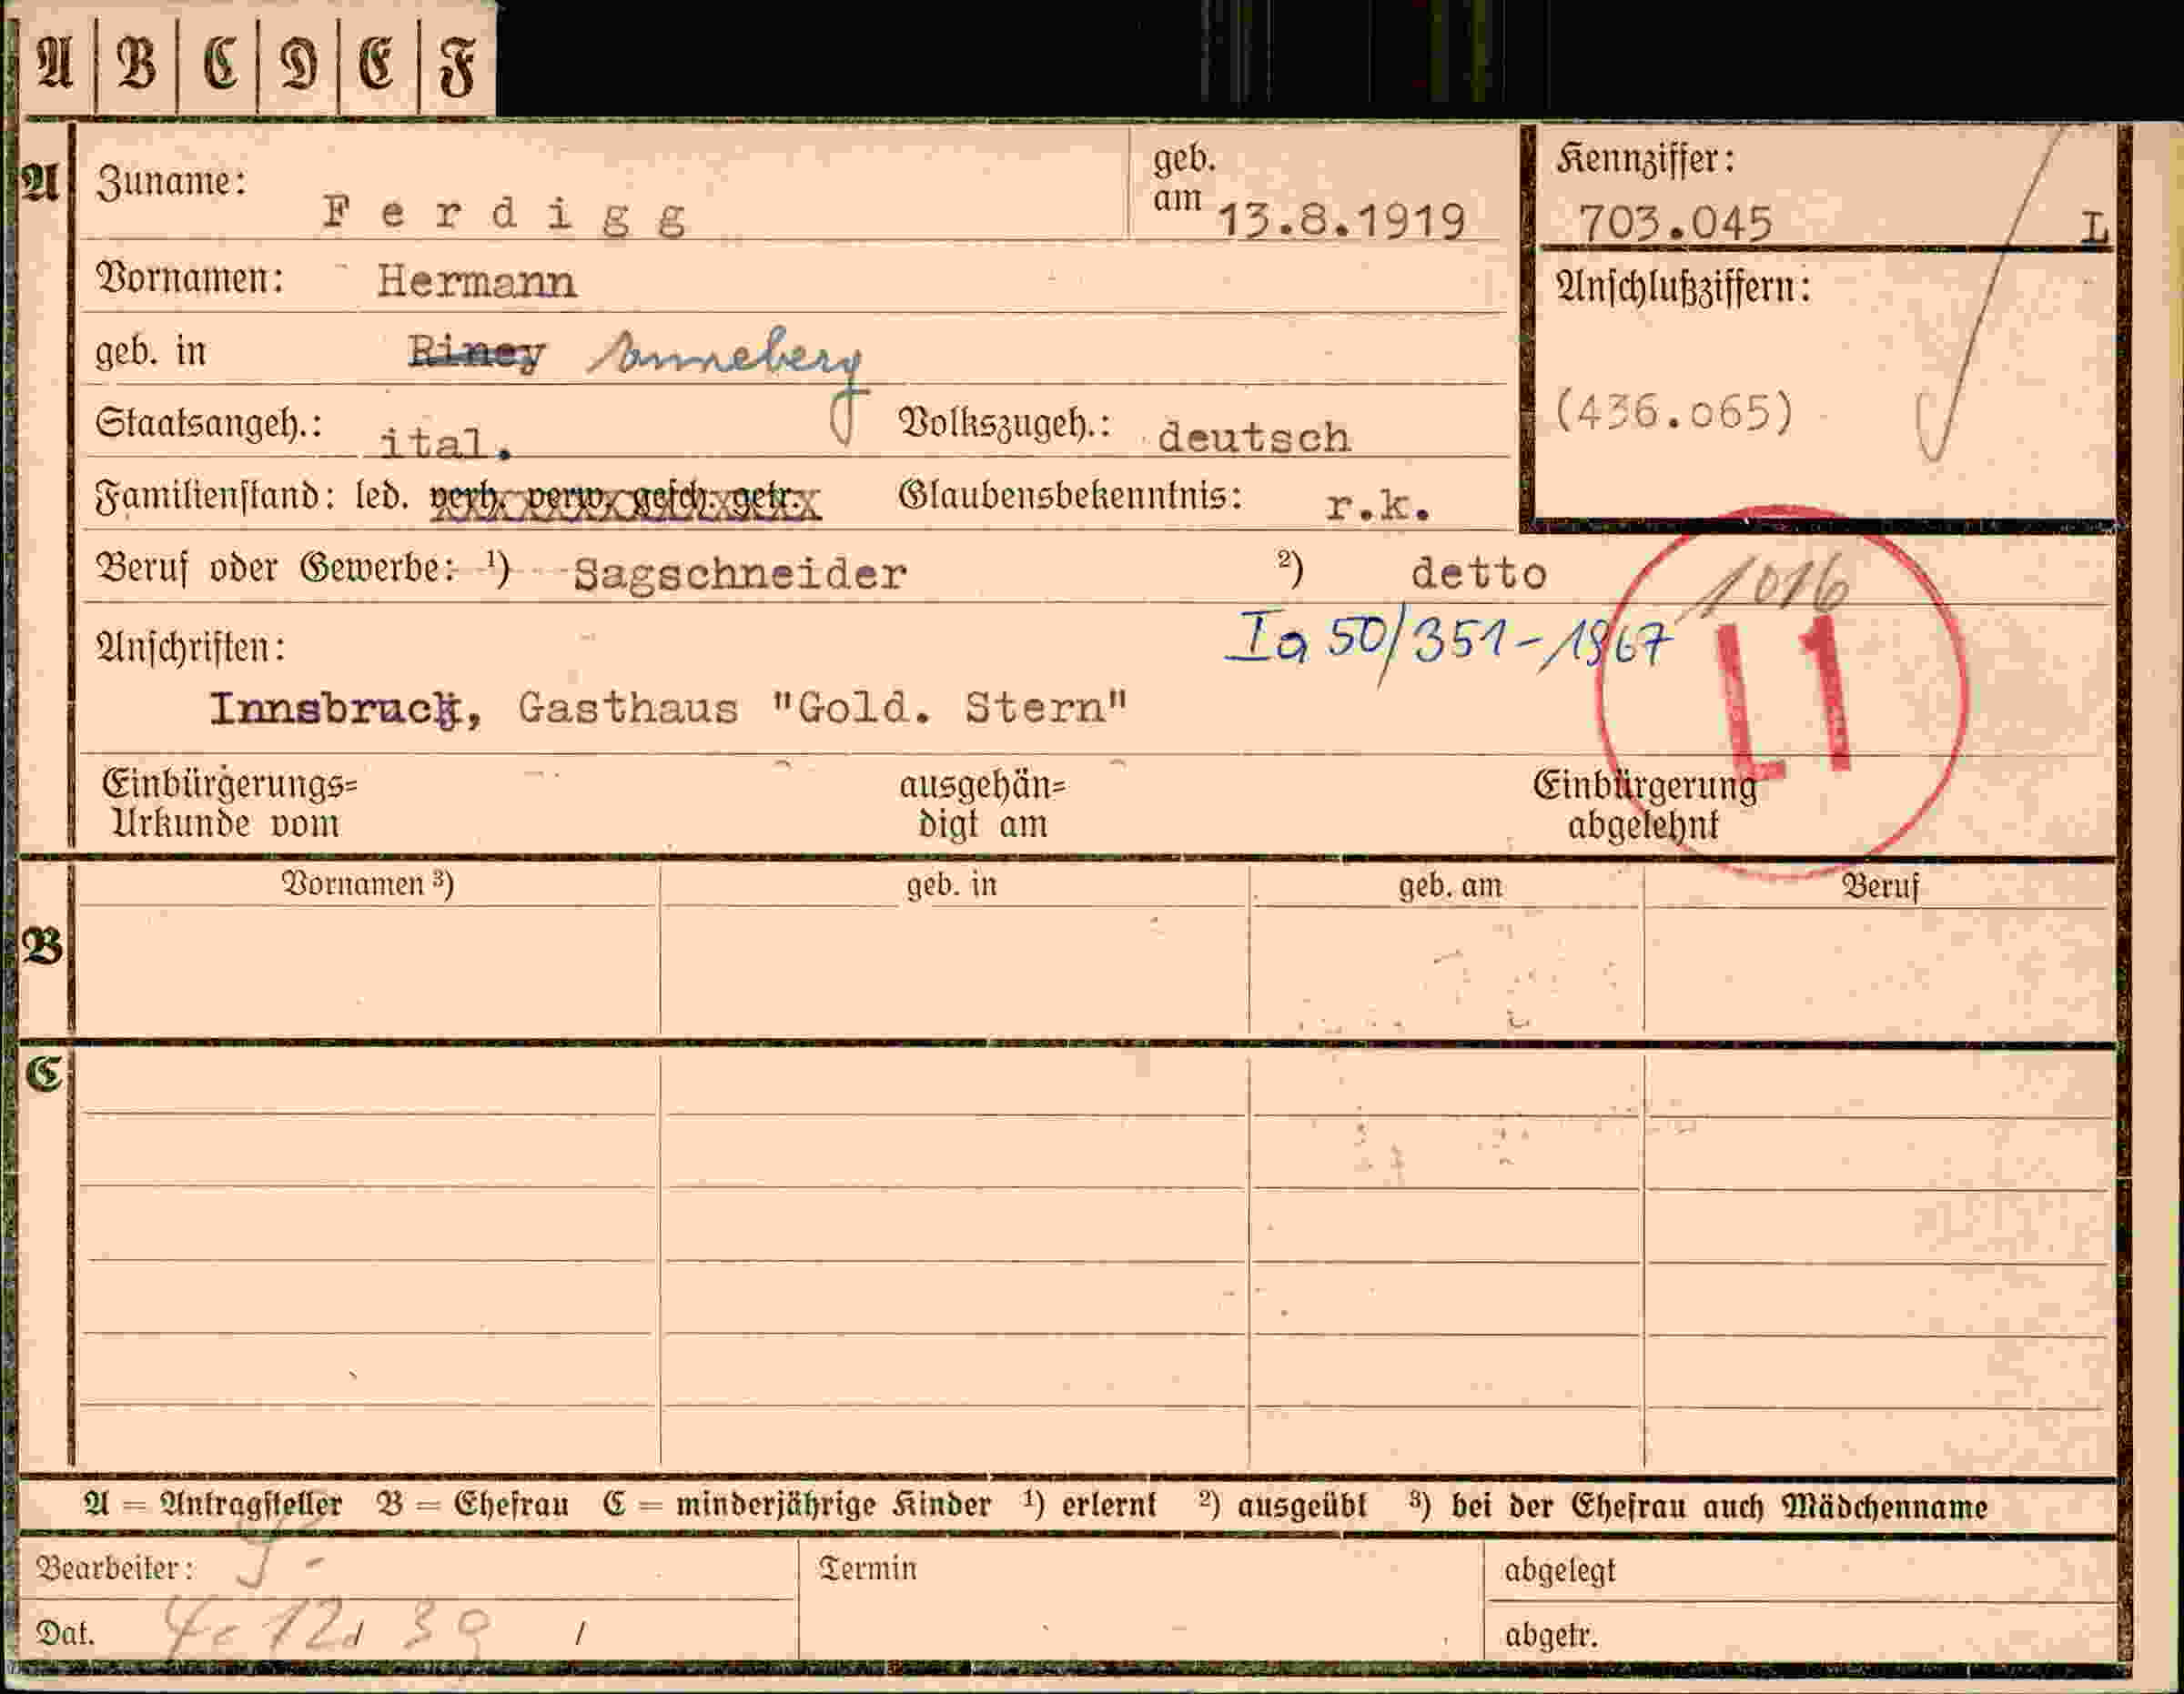 A B C D E F
A Zuname: Ferdigg geb. am 13.8.1919 Kennziffer: 703.045 L
Vornamen: Hermann Anschlußziffern:
geb. in Riney Anneberg
(436.065)
Staatsangeh.: ital. Volkszugeh.: deutsch
Familienstand: led. verh. verw. gesch. getr. Glaubensbekenntnis: r.k.
Beruf oder Gewerbe: ¹) Sagschneider ²) detto
1016
Anschriften: Ia 50/351-1967
L1
Innsbruck, Gasthaus "Gold. Stern"
Einbürgerungs= ausgehän= Einbürgerung
Urkunde vom digt am abgelehnt
Vornamen ³) geb. in geb. am Beruf
B
C
A = Antragsteller B = Ehefrau C = minderjährige Kinder ¹) erlernt ²) ausgeübt ³) bei der Ehefrau auch Mädchenname
Bearbeiter: Termin abgelegt
Dat. 4. 12. 39 / abgetr.